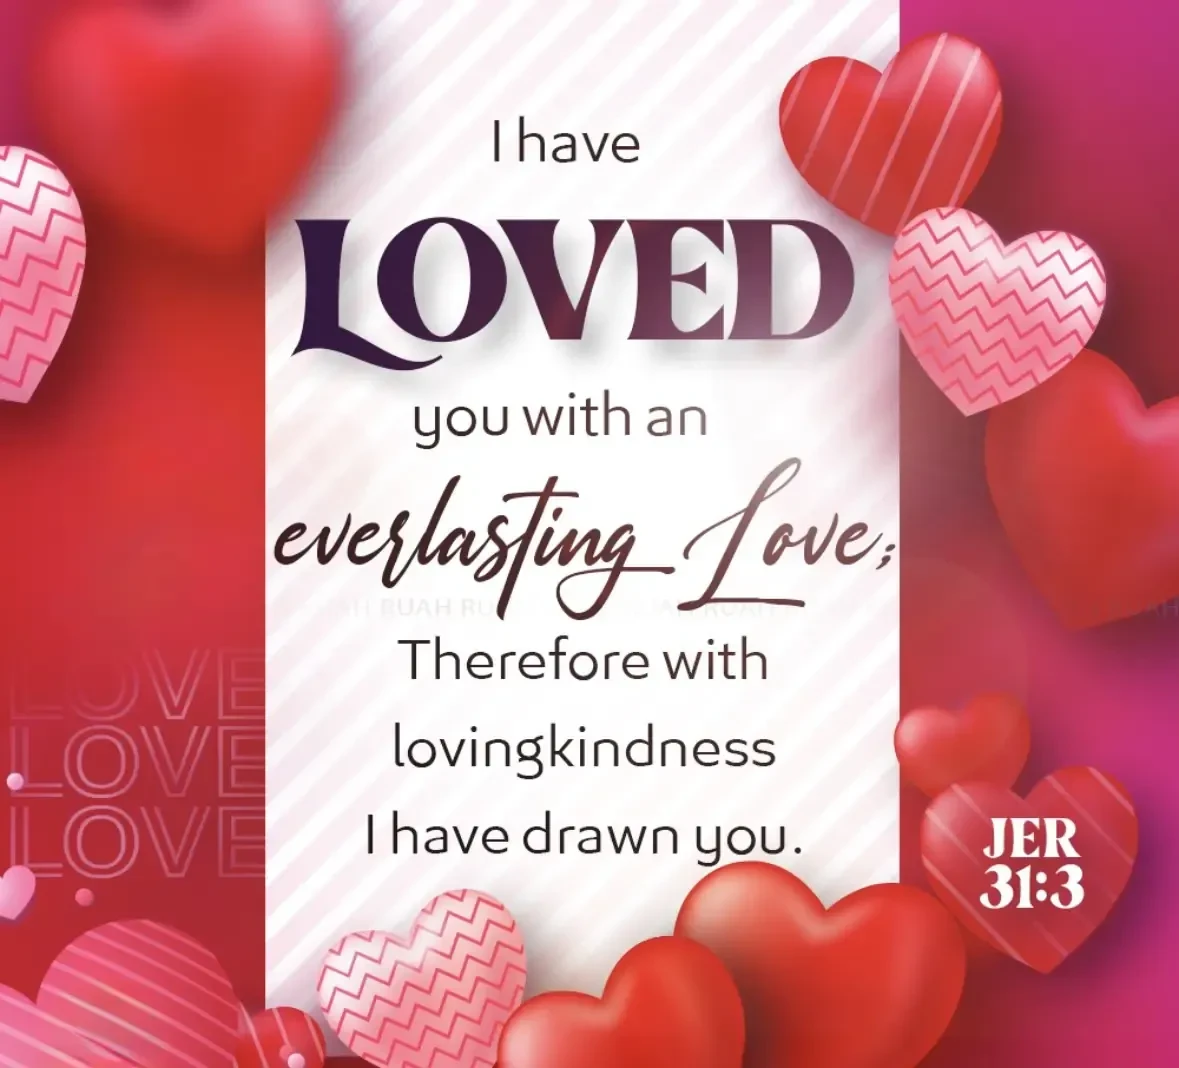 I have
LOVED
you with an
everlasting Love;
RUAH
Therefore with
lovingkindness
I have drawn you.
LOVE
LOVE
LOVE
JER
31:3